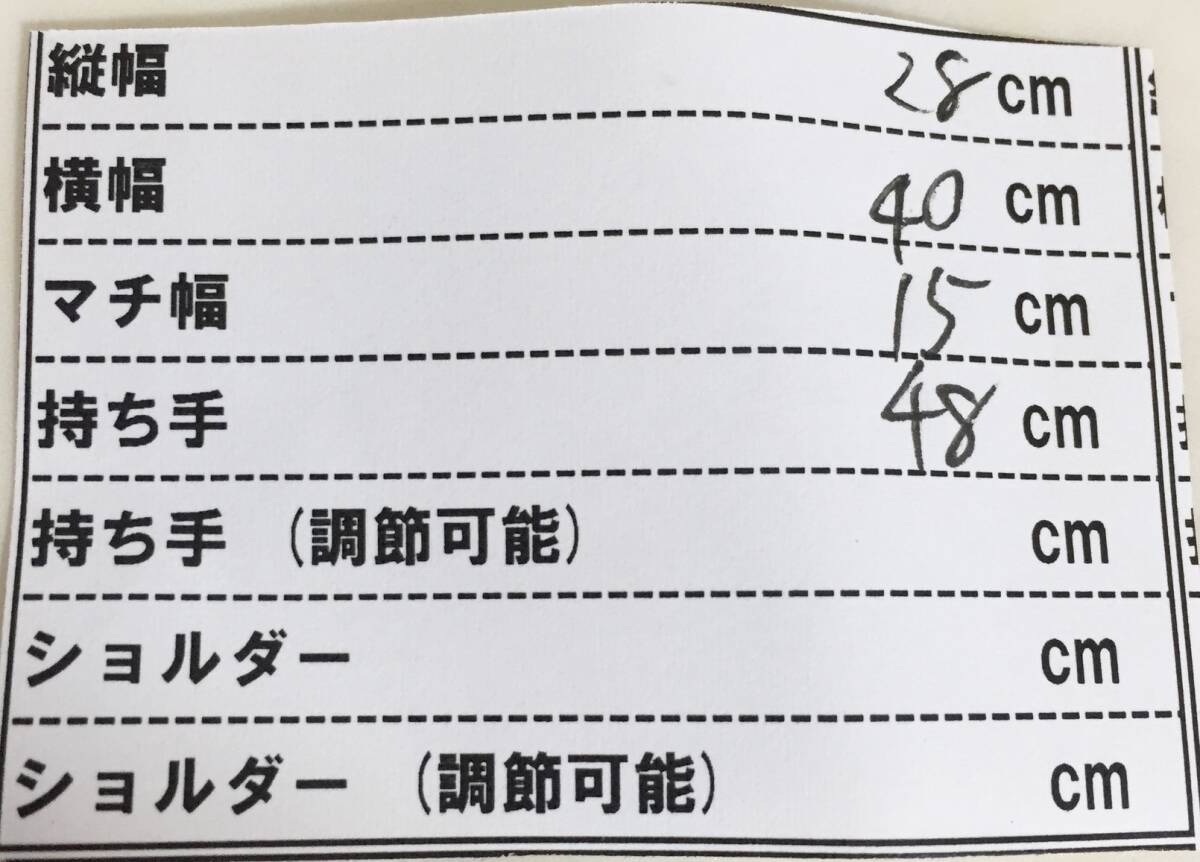 縦幅 28 cm
横幅 40 cm
マチ幅 15 cm
持ち手 48 cm
持ち手 (調節可能) cm
ショルダー cm
ショルダー (調節可能) cm